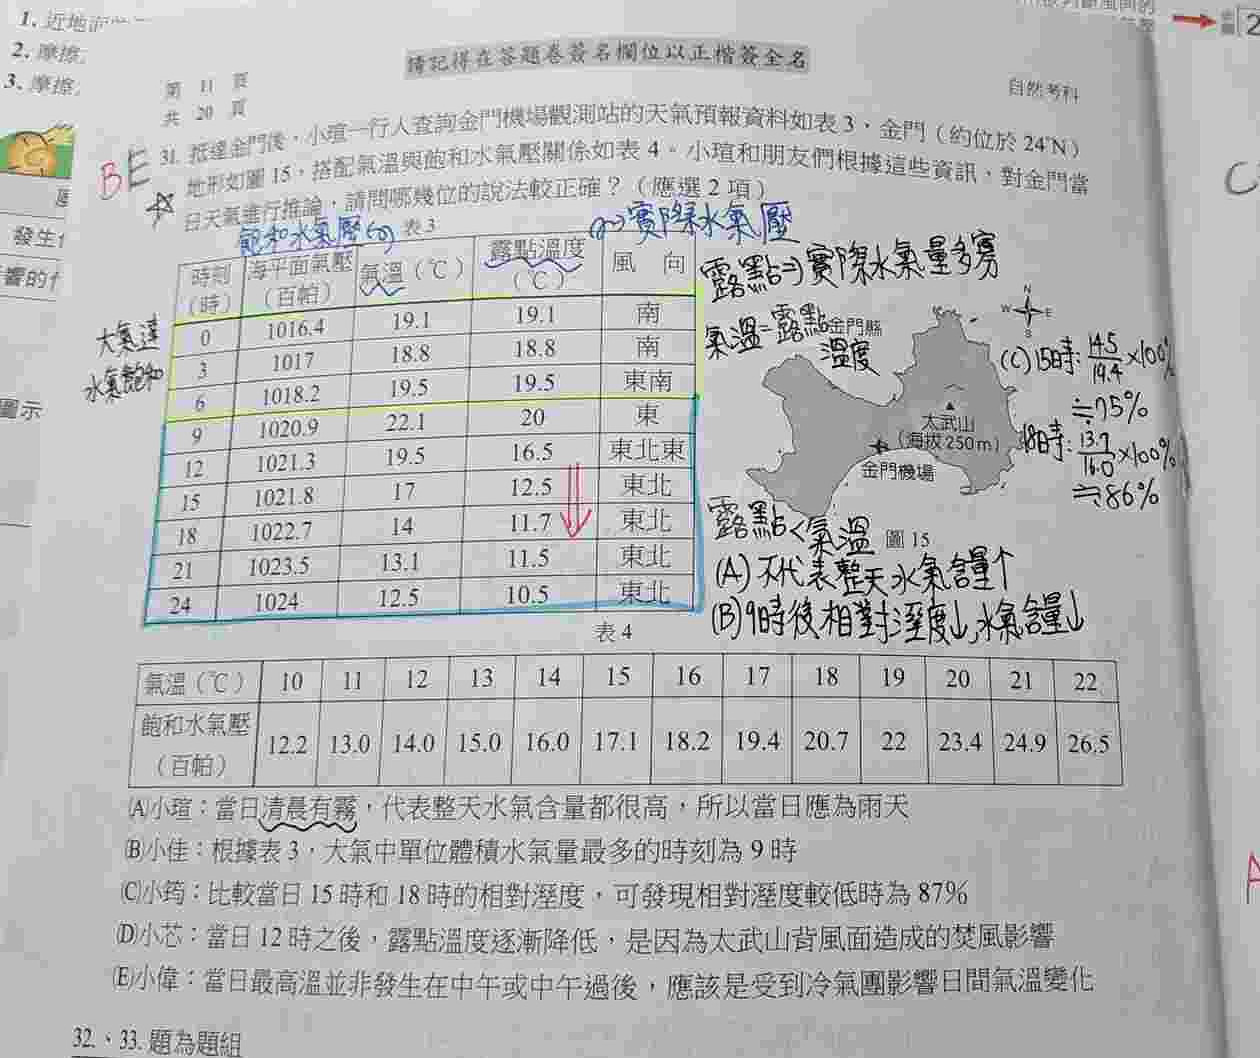 1. 近地面
2. 摩擦
3. 摩擦
請記得在答題卷簽名欄位以正楷簽全名
第 11 頁
共 20 頁
自然考科
BE
31. 抵達金門後，小瑄一行人查詢金門機場觀測站的天氣預報資料如表 3，金門（約位於 24°N）
地形如圖 15，搭配氣溫與飽和水氣壓關係如表 4。小瑄和朋友們根據這些資訊，對金門當
日天氣進行推論，請問哪幾位的說法較正確？（應選 2 項）
飽和水氣壓
表 3
實際水氣壓
時刻（時） 海平面氣壓（百帕） 氣溫（℃） 露點溫度（℃） 風 向
0 1016.4 19.1 19.1 南
3 1017 18.8 18.8 南
6 1018.2 19.5 19.5 東南
9 1020.9 22.1 20 東
12 1021.3 19.5 16.5 東北東
15 1021.8 17 12.5 東北
18 1022.7 14 11.7 東北
21 1023.5 13.1 11.5 東北
24 1024 12.5 10.5 東北
大氣達
水氣飽和
露點⇒實際水氣量多寡
氣溫=露點
溫度
金門縣
N
W E
S
太武山
（海拔 250 m）
金門機場
圖 15
(C) 15時: 14.5/19.4 ×100%
≒75%
18時: 13.7/16.0 ×100%
≒86%
露點<氣溫
(A) 不代表整天水氣含量↑
(B) 9時後相對溼度↓,水氣含量↓
表 4
氣溫（℃） 10 11 12 13 14 15 16 17 18 19 20 21 22
飽和水氣壓（百帕） 12.2 13.0 14.0 15.0 16.0 17.1 18.2 19.4 20.7 22 23.4 24.9 26.5
(A)小瑄：當日清晨有霧，代表整天水氣含量都很高，所以當日應為雨天
(B)小佳：根據表 3，大氣中單位體積水氣量最多的時刻為 9 時
(C)小筠：比較當日 15 時和 18 時的相對溼度，可發現相對溼度較低時為 87%
(D)小芯：當日 12 時之後，露點溫度逐漸降低，是因為太武山背風面造成的焚風影響
(E)小偉：當日最高溫並非發生在中午或中午過後，應該是受到冷氣團影響日間氣溫變化
32.、33. 題為題組
發生
響的
圖示
2
C
A